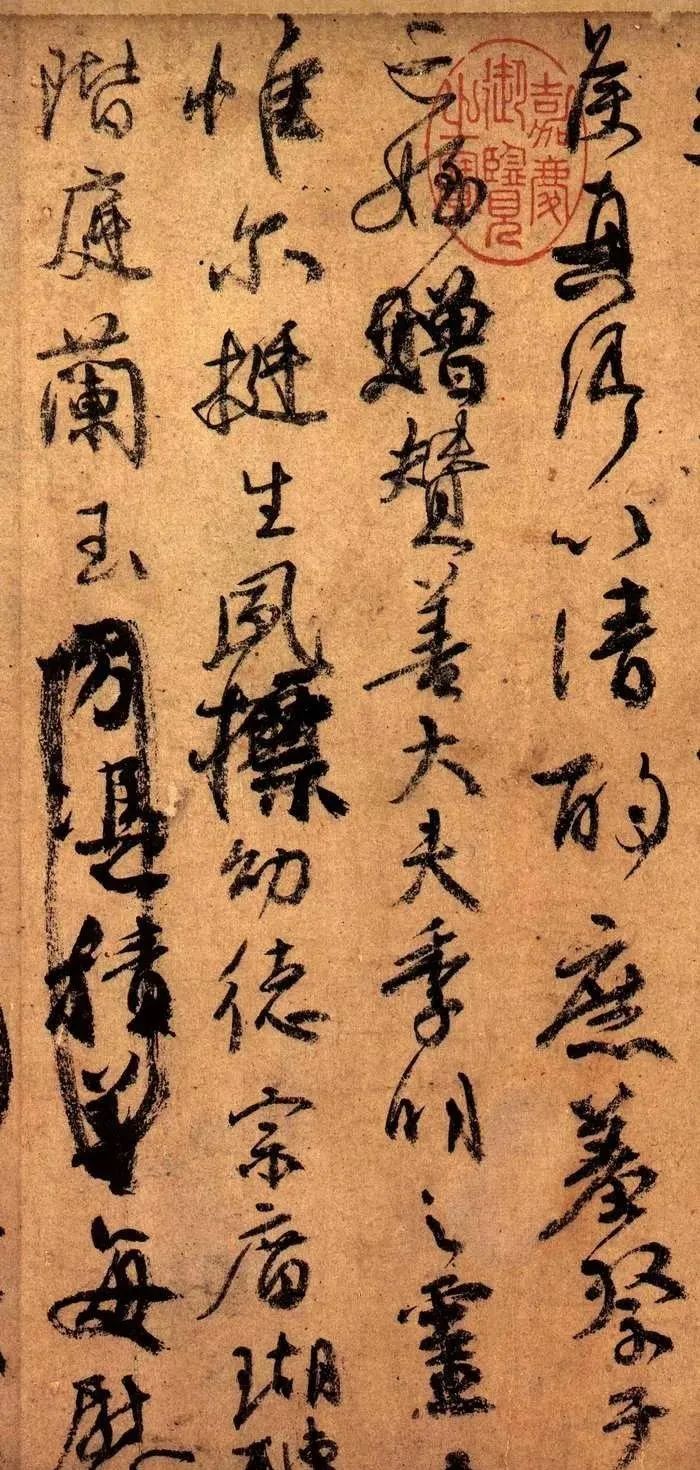 侯真卿以清酌庶羞祭于
亡姪贈贊善大夫季明之靈
惟尔挺生夙標幼德宗庿瑚
階庭蘭玉方憑積善每慰
嘉慶御覽之寶